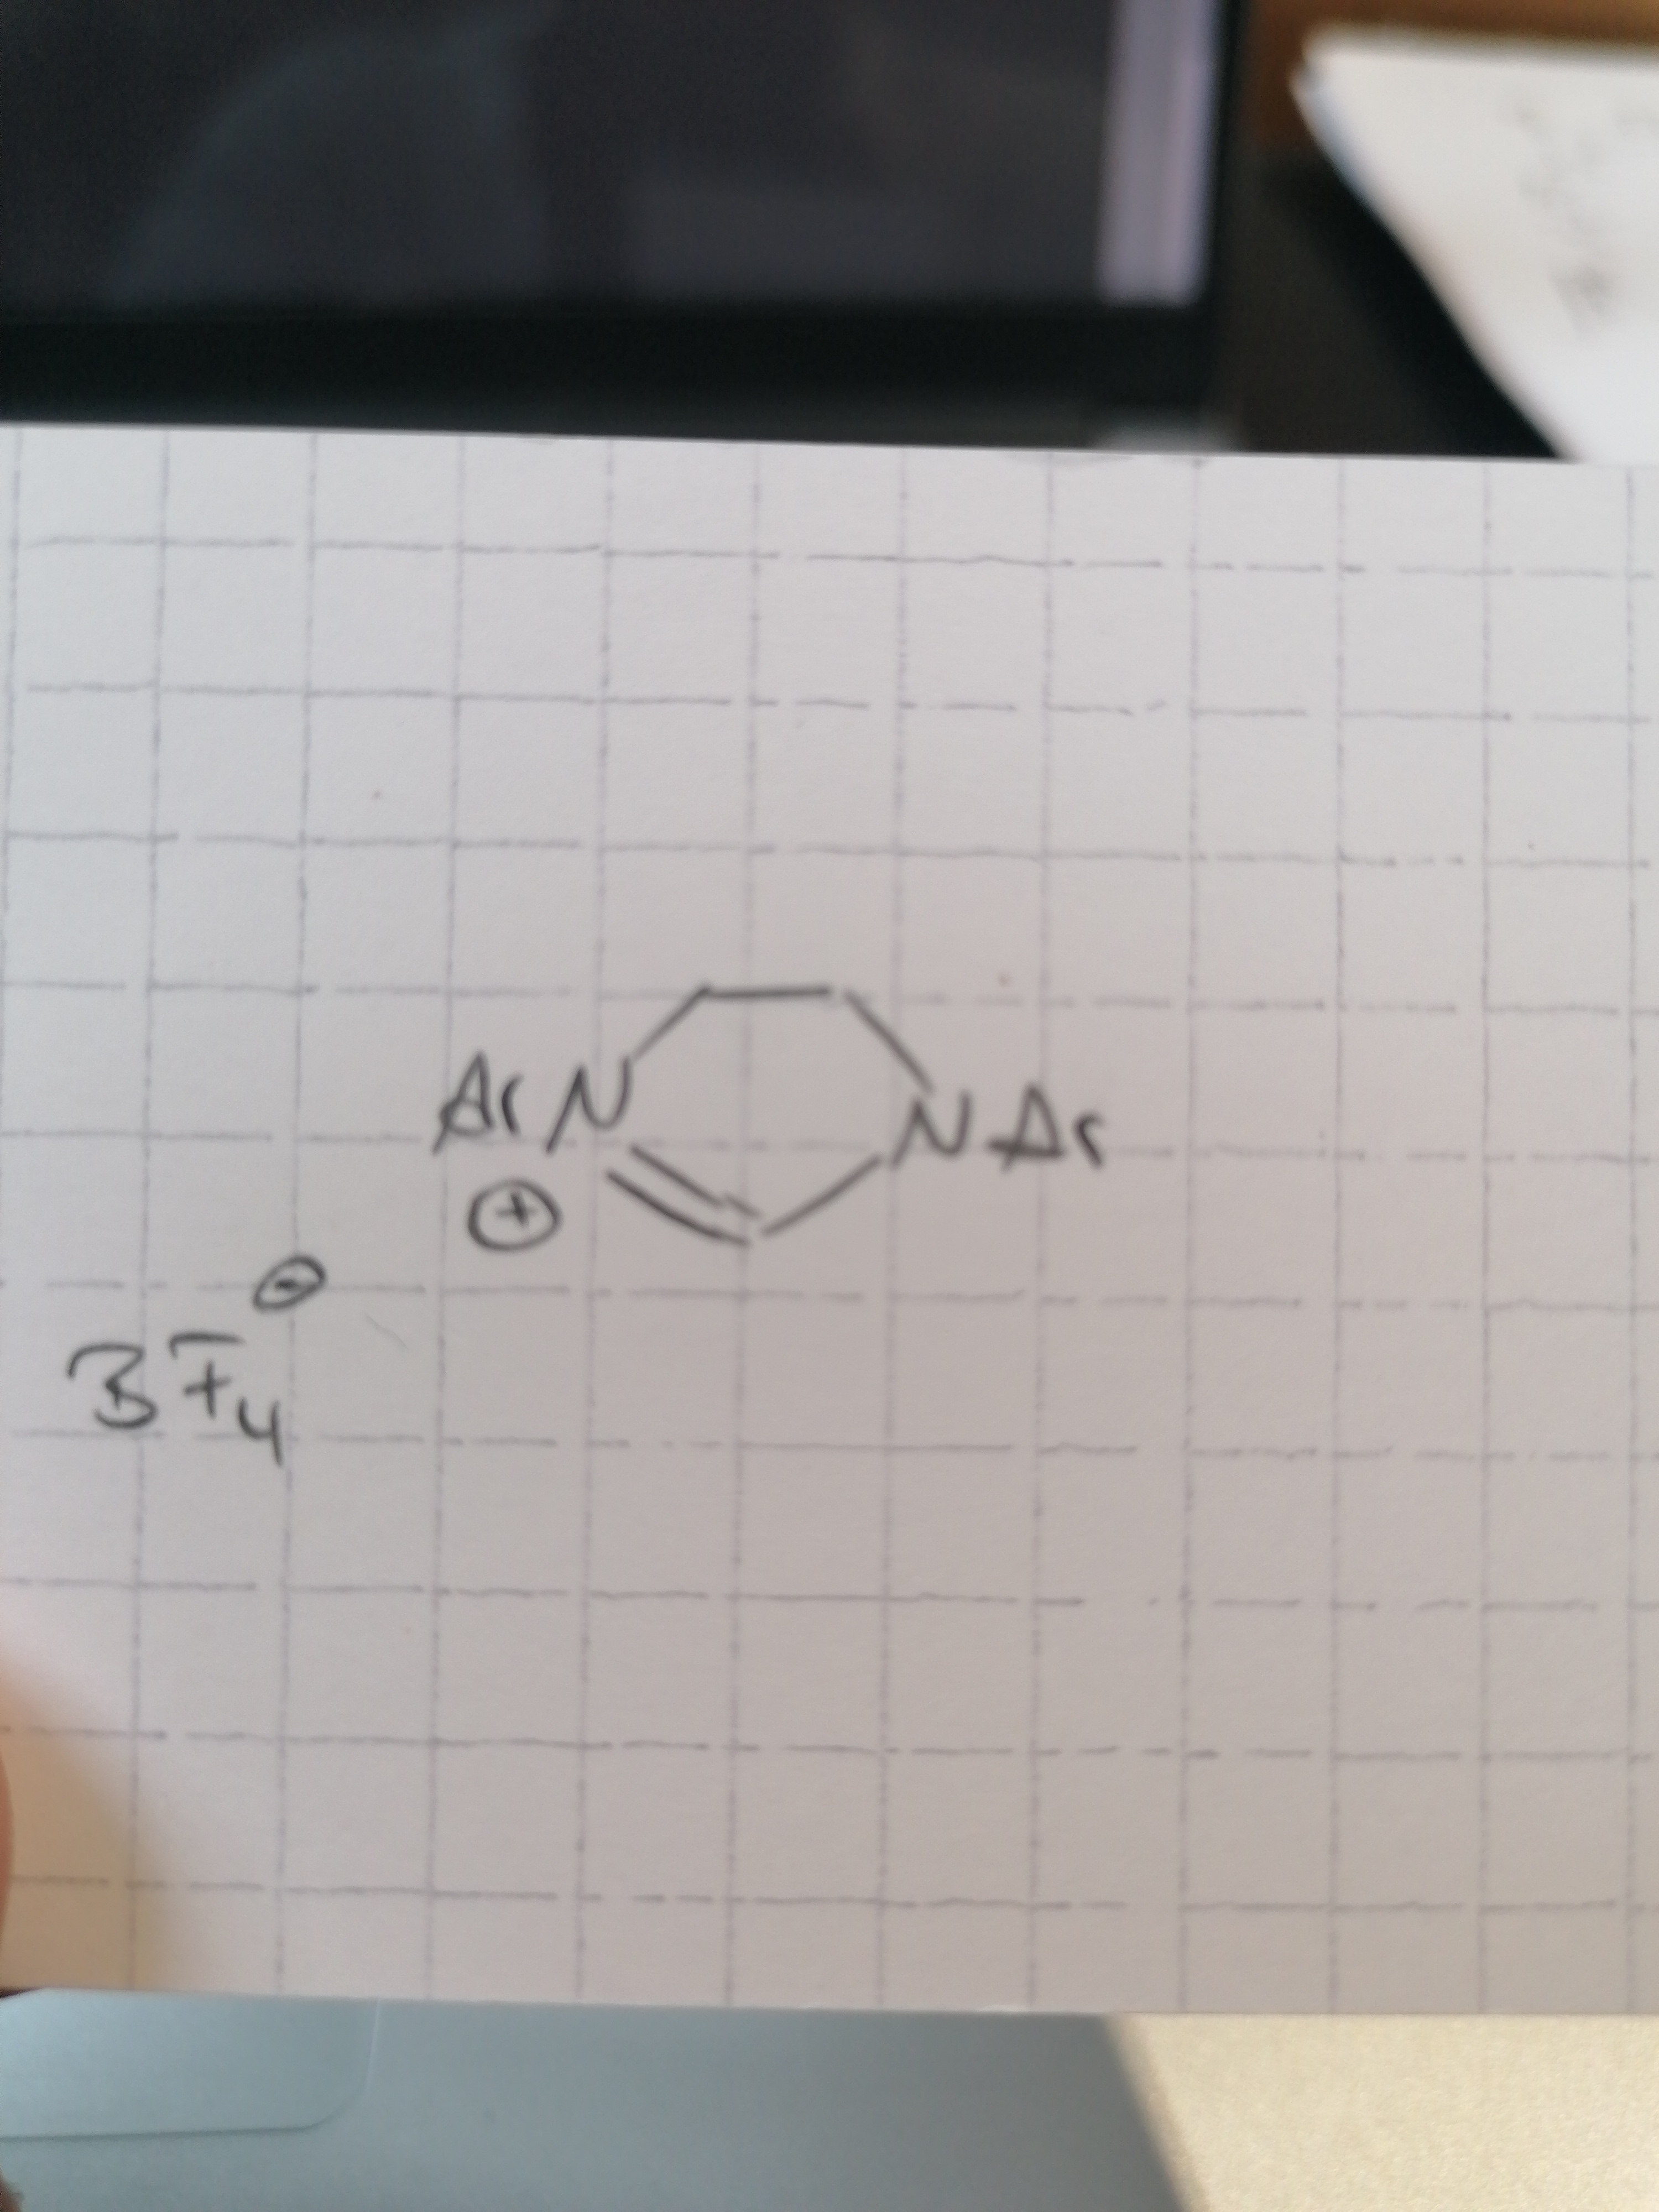 ArN NAr
⊕
⊖
BF4